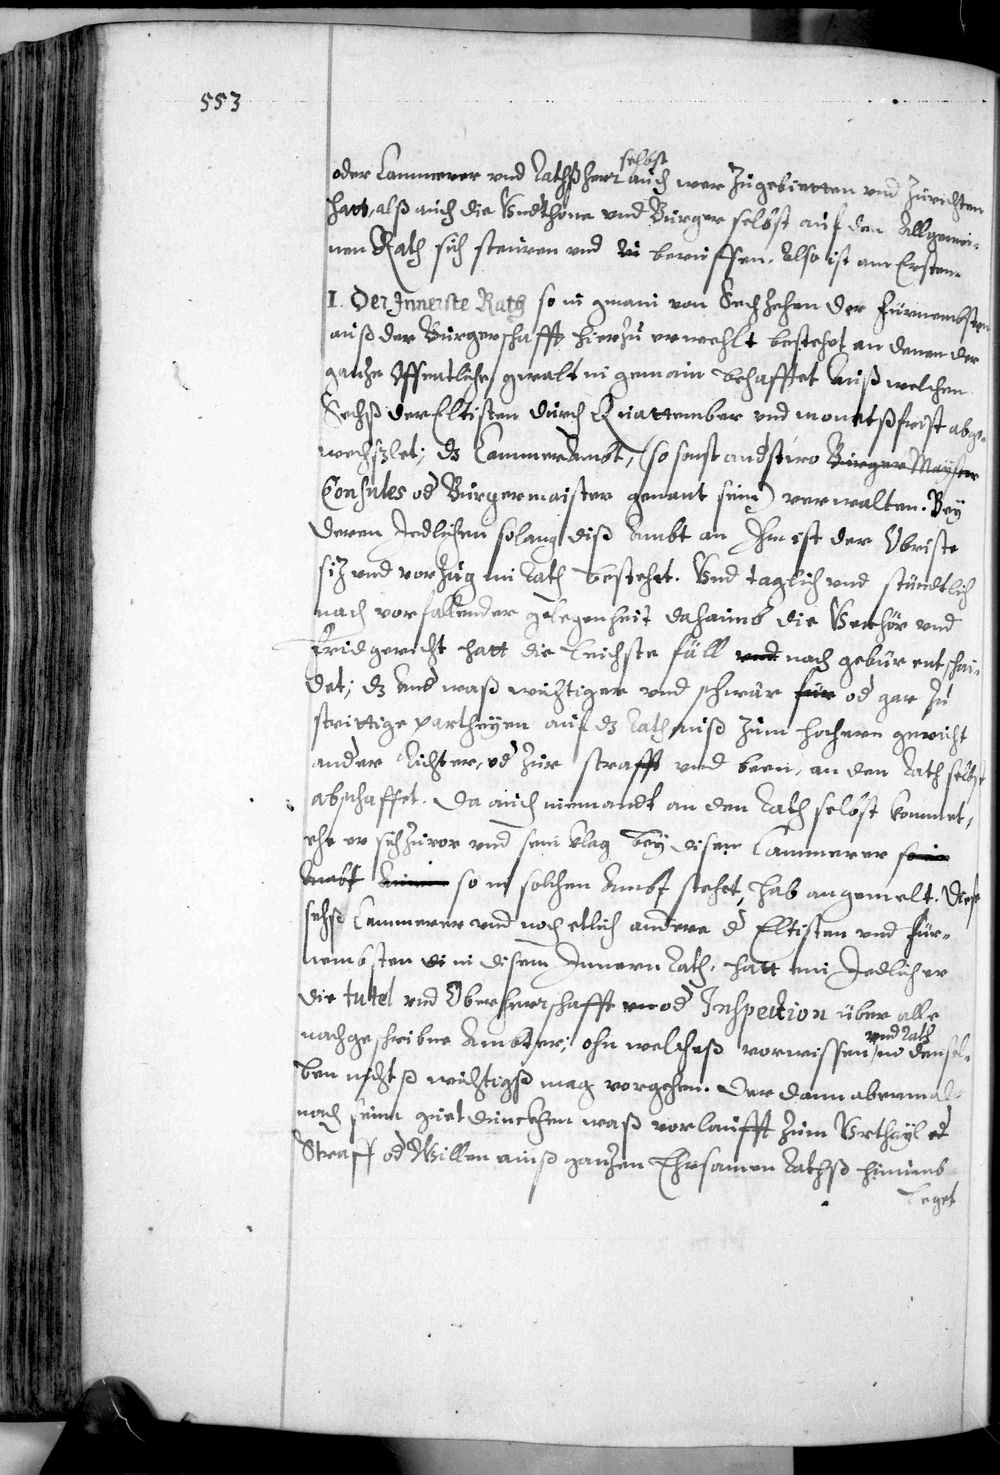 553
selbst
oder Cammerer vnd Rathßherr auch wer zugebietten vnd zurichten
hatt, alß auch die Vndthone vnd Burger selbst auf den Allgemei-
nen Rath sich steuren vnd zu beruffen. Also ist am Ersten.
I. Der Innerste Rath so in gmain von Sechzehen der fürnembsten
auß der Burgerschafft hierzu erwehlt bestehet an denen der
ganze Offentliche gwalt in gemain behafftet auß welchen
Sechß der Eltisten durch Quattember vnd monatßfrist abge-
wechßlet; dz Cammer Ambt, (so sonst anderstwo Burger Mayster
Consules od Burgermaister genant sein) verwalten. Bey
deren Jedlichen solang diß Ambt an Ihm ist der Obriste
siz vnd vorzug im Rath bestehet. Vnd taglich vnd stündtlich
nach vorfallender gelegenheit dahaimb die Verhör vnd
fridgericht hatt die leichste fäll vnd nach gebür entschai-
det; dz And waß wichtiger vnd schwär für od gar zu
strittige partheyen auf dz Rathauß zum hochern gericht
ander Richter, od zur straff vnd peen, an den Rath selbst
abschaffet. Da auch niemandt an den Rath selbst kommet,
ehe er sich zuvor vnd sein klag bey disem Cammerer sein
Ambt so in solchen Ambt stehet, hab angemelt. Diese
sechß Cammerer vnd noch etlich andere d Eltisten vnd für-
nembsten di in disem Innern Rath, hatt ein Jedlicher
die tutel vnd Oberherrschafft od Inspection über alle
nachgeschribne Ambter; ohn welcheß vorwissen vnd Rath in densel-
ben nichtß wichtigß mag vorgehen. Der dann abermal
nach seim guetduncken waß vorlaufft zum Vrthayl od
Straff od Willen einß ganzen Ehrsamen Rathß haimb
leget